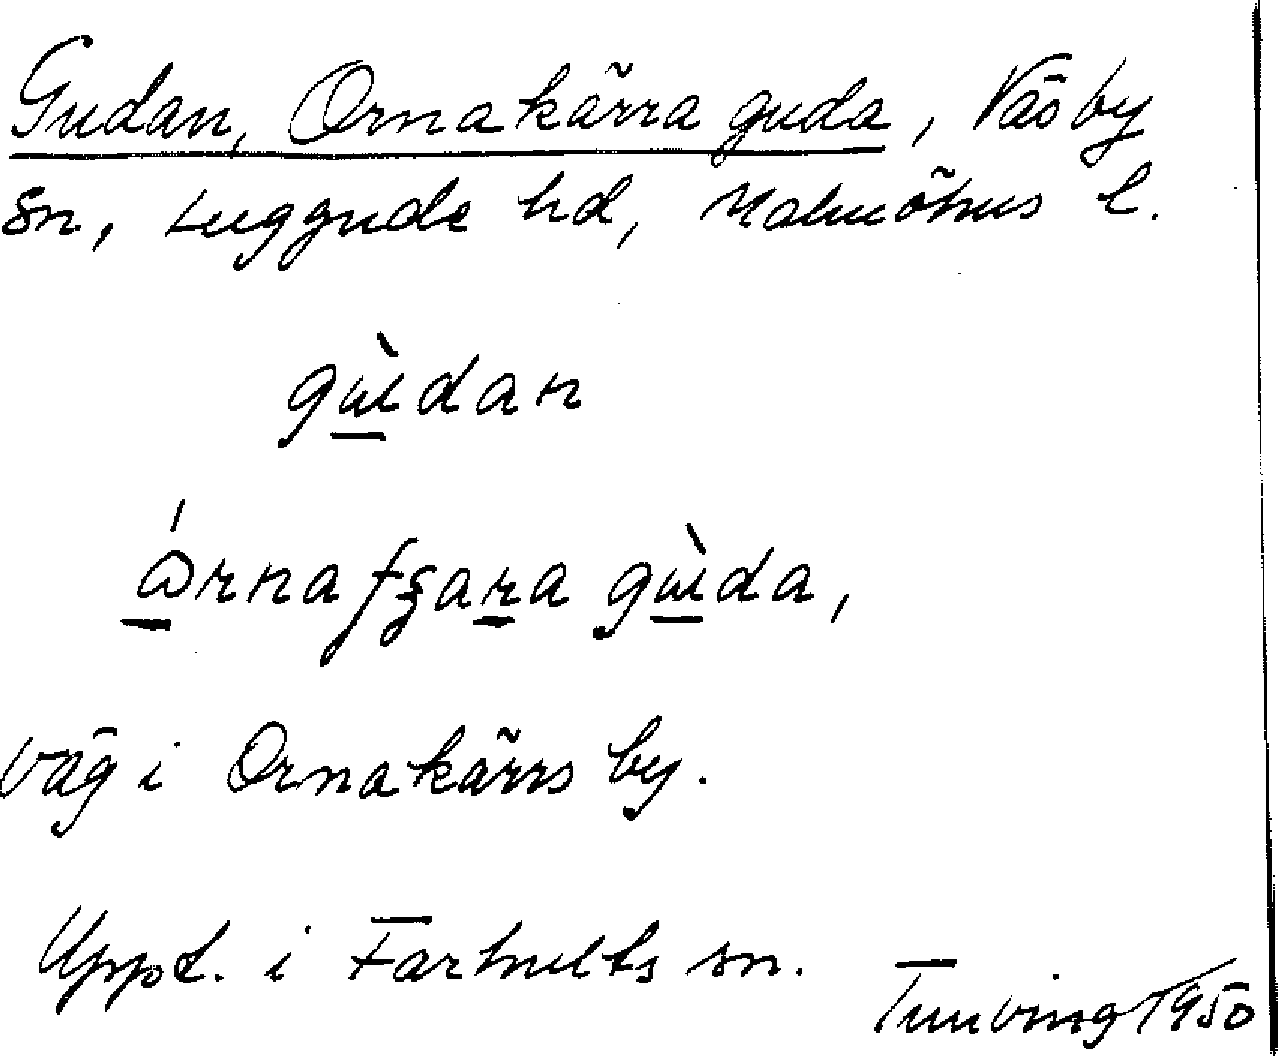 Gudan, Ornakärra guda, Väsby
sn, Luggude hd, Malmöhus l.
gùdan
órnafʒara gùda,
väg i Ornakärrs by.
Uppt. i Farhults sn.
Tuneving 1950